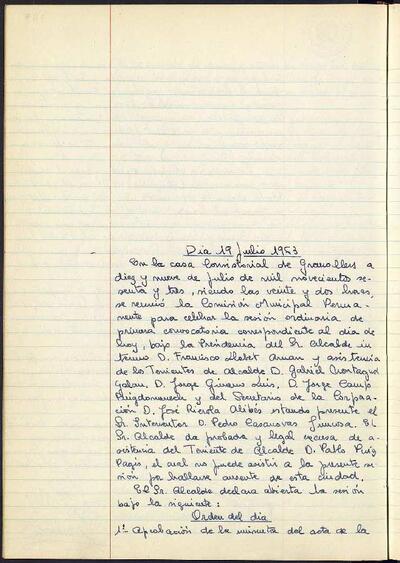 Dia 19 Julio 1963
En la casa Consistorial de Granollers a
diez y nueve de Julio de mil novecientos se-
senta y tres, siendo las veinte y dos horas,
se reunió la Comisión Municipal Perma-
nente para celebrar la sesión ordinaria de
primera convocatoria correspondiente al dia de
hoy, bajo la Presidencia del Sr. Alcalde in-
terino D. Francisco Llobet Arnan y asistencia
de los Tenientes de Alcalde D. Gabriel
D. Jorge D. Jorge Camp
Puigdomenech y del Secretario de la Corpora-
ción D. José estando presente el
Sr. Interventor D. Pedro Casanovas El
Sr. Alcalde da probada y legal excusa de a-
sistencia del Teniente de Alcalde D. Pablo Puig
Pagés, el cual no puede asistir a la presente se-
sión por hallarse ausente de esta ciudad.
El Sr. Alcalde declara abierta la sesión
bajo la siguiente:
Orden del dia
1º- Aprobación de la minuta del acta de la